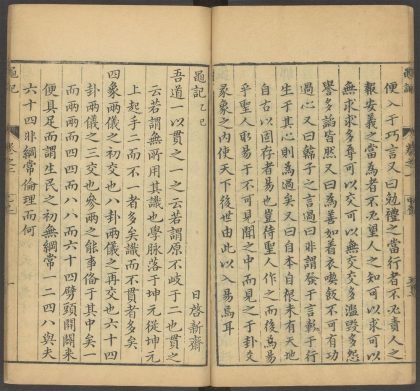 便入于巧言又曰勉禮之當行者不丞責人之
報安義之當為者不丞望人之知可以求可以
無求求多辱可以交可以無交交多濫毀多怨
譽多諂皆然又曰為善如着衣喫飯不可有功
過心又曰輪子之言過曰非謂發于言動于行
生于其心則為過矣又曰自本自根未有天地
自古以固存者易也豈待聖人作之而後為易
乎聖人取易于不可見聞之中而見之于卦爻
彖象之內使天下後世由此以入易焉耳
黽記 乙巳
日啓新齋
吾道一以貫之一之云若謂原不岐于二也貫之
云若謂無所用其識也學脉落于坤元從坤元
上起手二而不一者多矣識而不貫者多矣
四象兩儀之初交也八卦兩儀之再交也六十四
卦兩儀之三交也參兩之能事俻于其中矣一
而兩兩而四四而八八而六十四劈頭開闢來
便具足而謂生民之初無綱常一二四八與夫
六十四非綱常倫理而何
黽記
卷之二